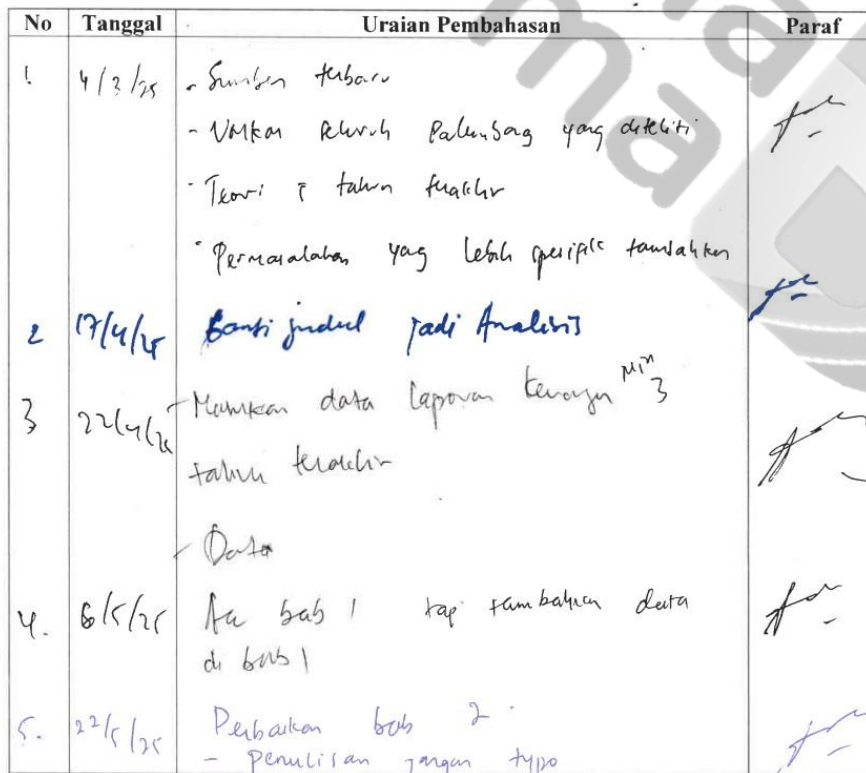 No Tanggal Uraian Pembahasan Paraf
1. 4/3/25 - Sumber terbaru
- seluruh Palembang yang diteliti
- Teori 5 tahun terakhir
- Permasalahan yang lebih spesifik tambahkan
2 17/4/25 Ganti judul jadi Analisis
3 22/4/25 - Masukkan data laporan keuangan min 3
tahun terakhir
- Data
4. 6/5/25 Acc bab 1 tapi tambahkan data
di bab 1
5. 22/5/25 Perbaikan bab 2
- penulisan jangan typo